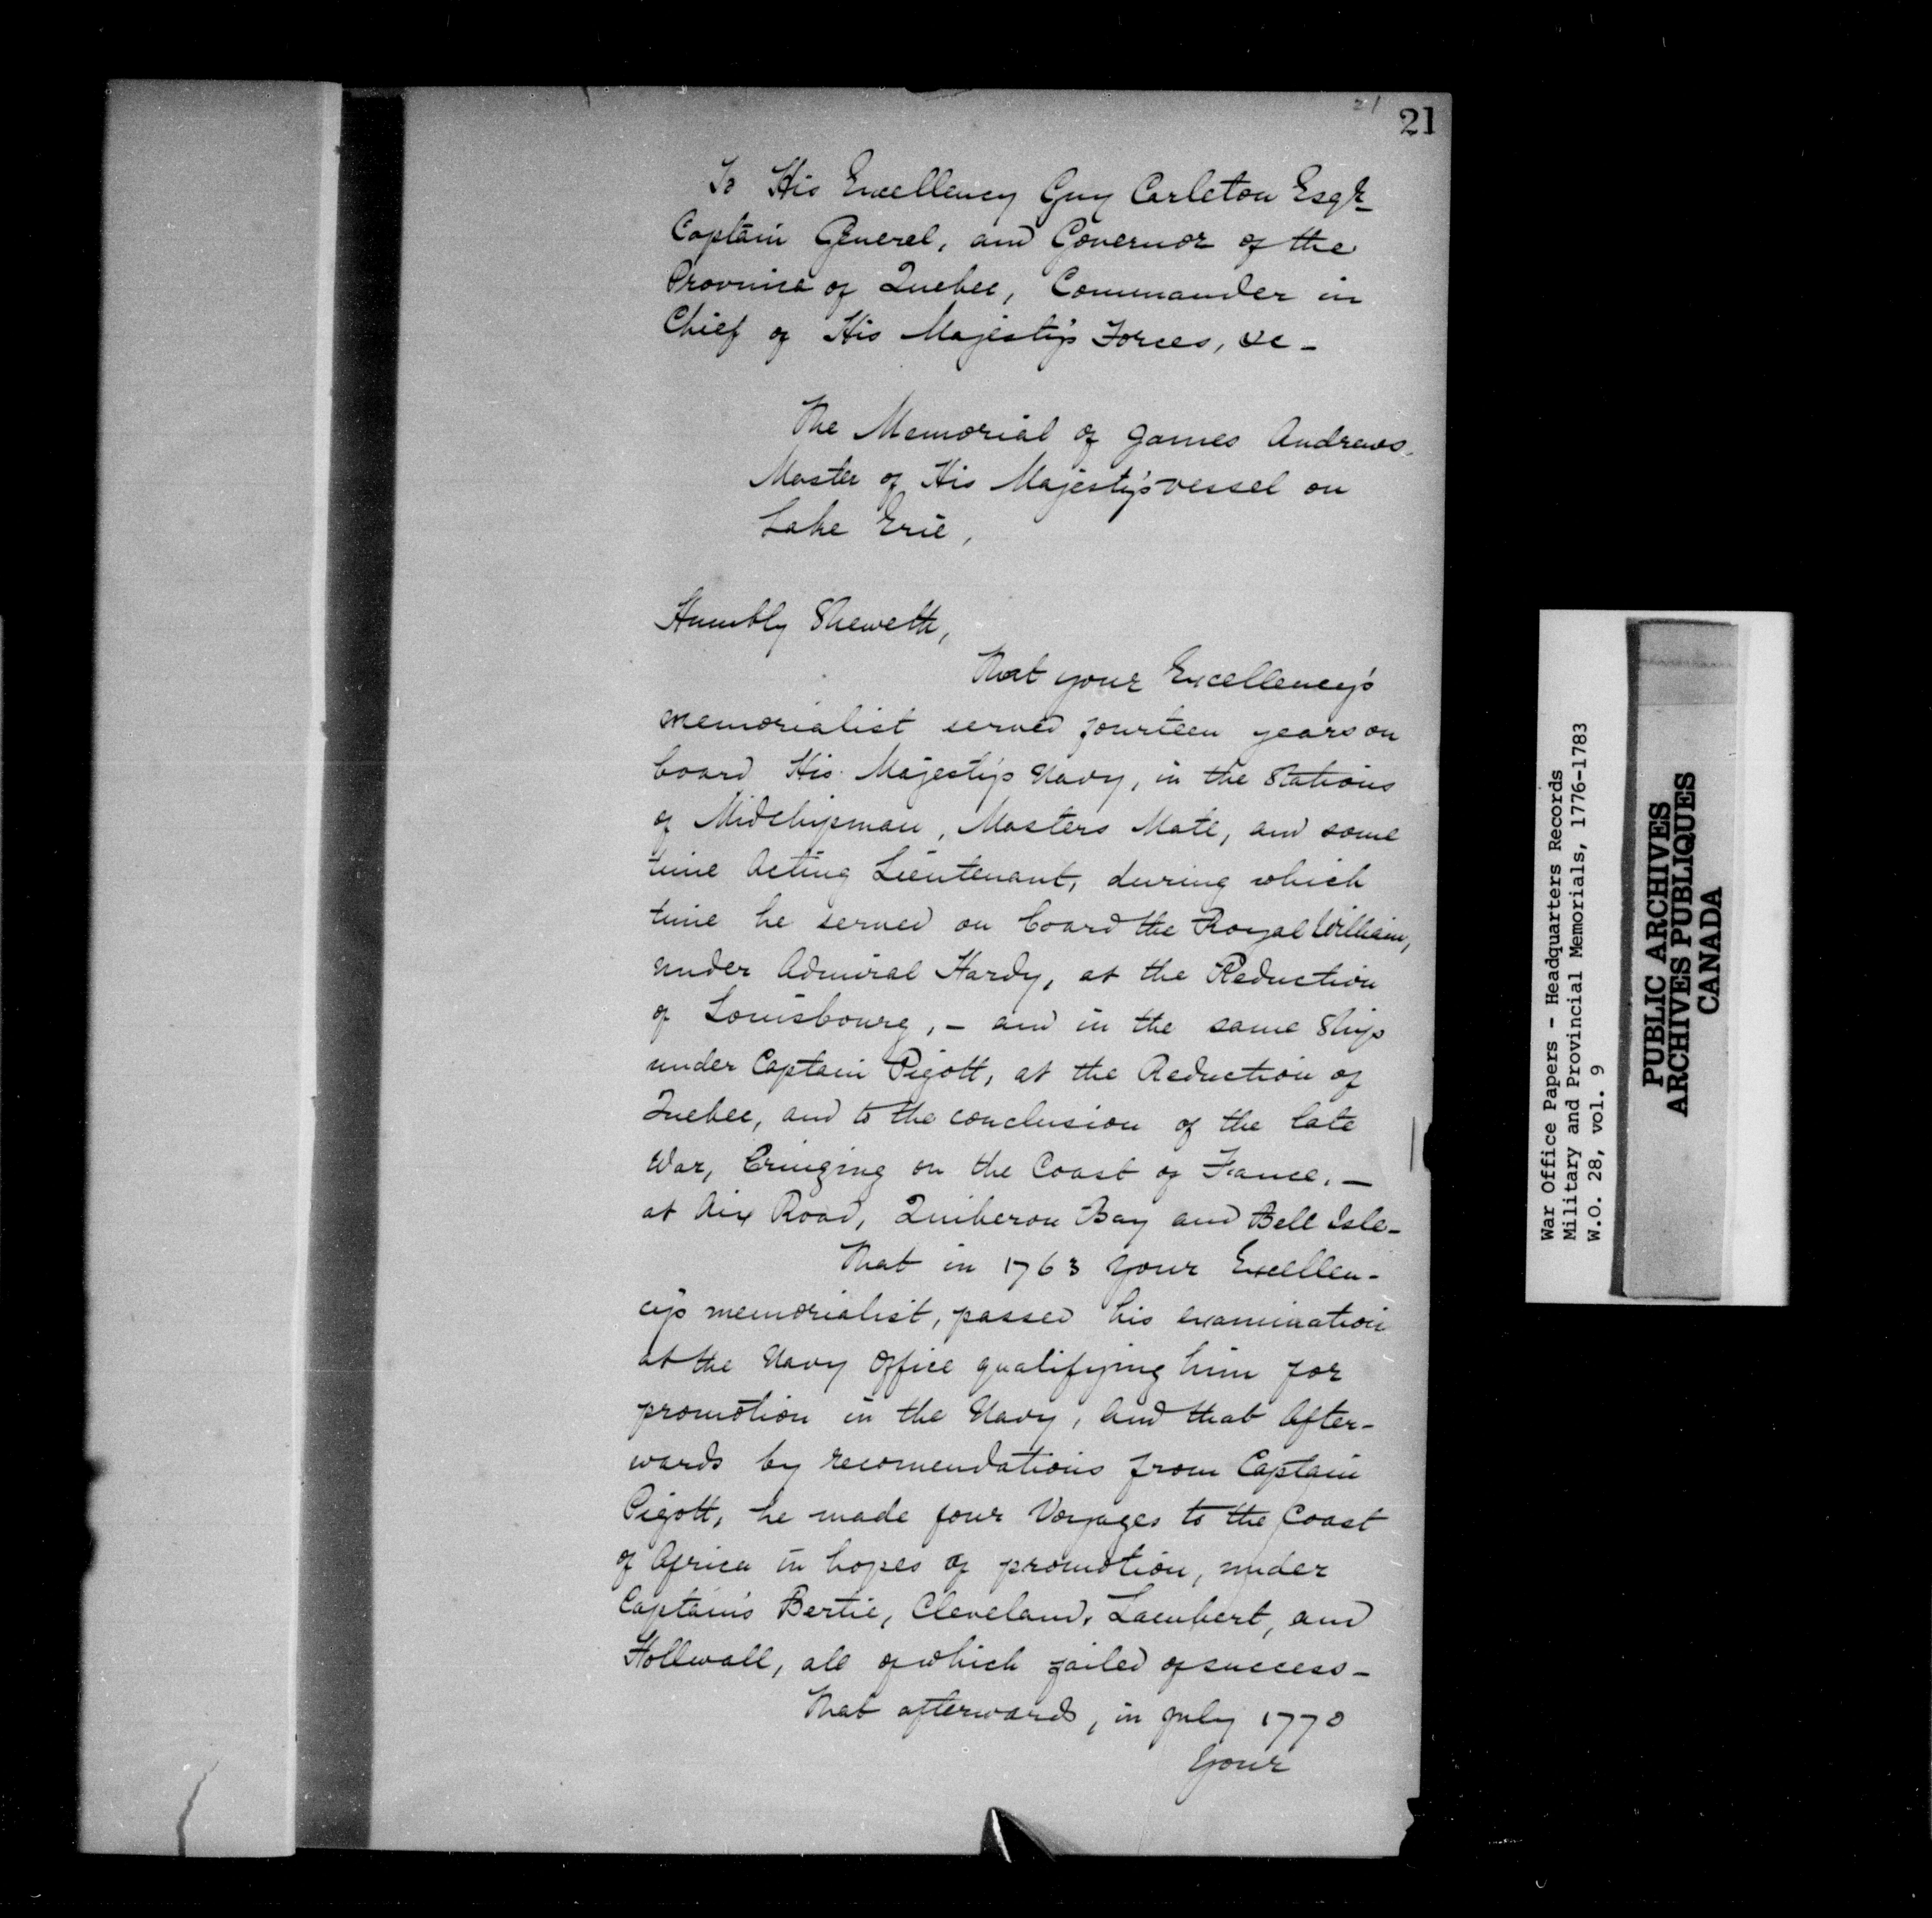 21
21
To His Excellency Guy Carleton Esqr
Captain General, and Governor of the
Province of Quebec, Commander in
Chief of His Majesty's Forces, &c -
The Memorial of James Andrews
Master of His Majesty's vessel on
Lake Erie,
Humbly Sheweth,
That your Excellency's
memorialist served fourteen years on
board His Majesty's Navy, in the Stations
of Midshipman, Masters Mate, and some
time Acting Lieutenant, during which
time he served on board the Royal William,
under Admiral Hardy, at the Reduction
of Louisbourg, - and in the same Ship
under Captain Pigott, at the Reduction of
Quebec, and to the conclusion of the late
War, Cruizing on the Coast of France. -
at Aix Road, Quiberon Bay and Bell Isle -
That in 1763 your Excellen-
cy's memorialist, passed his examination
at the Navy Office qualifying him for
promotion in the Navy, and that After-
wards by recomendations from Captain
Pigott, he made four Voyages to the Coast
of Africa in hopes of promotion, under
Captains Bertie, Cleveland, Lambert, and
Hollwall, all of which failed of success -
That afterwards, in July 1770
Your
War Office Papers - Headquarters Records
Military and Provincial Memorials, 1776-1783
W.O. 28, vol. 9
PUBLIC ARCHIVES
ARCHIVES PUBLIQUES
CANADA